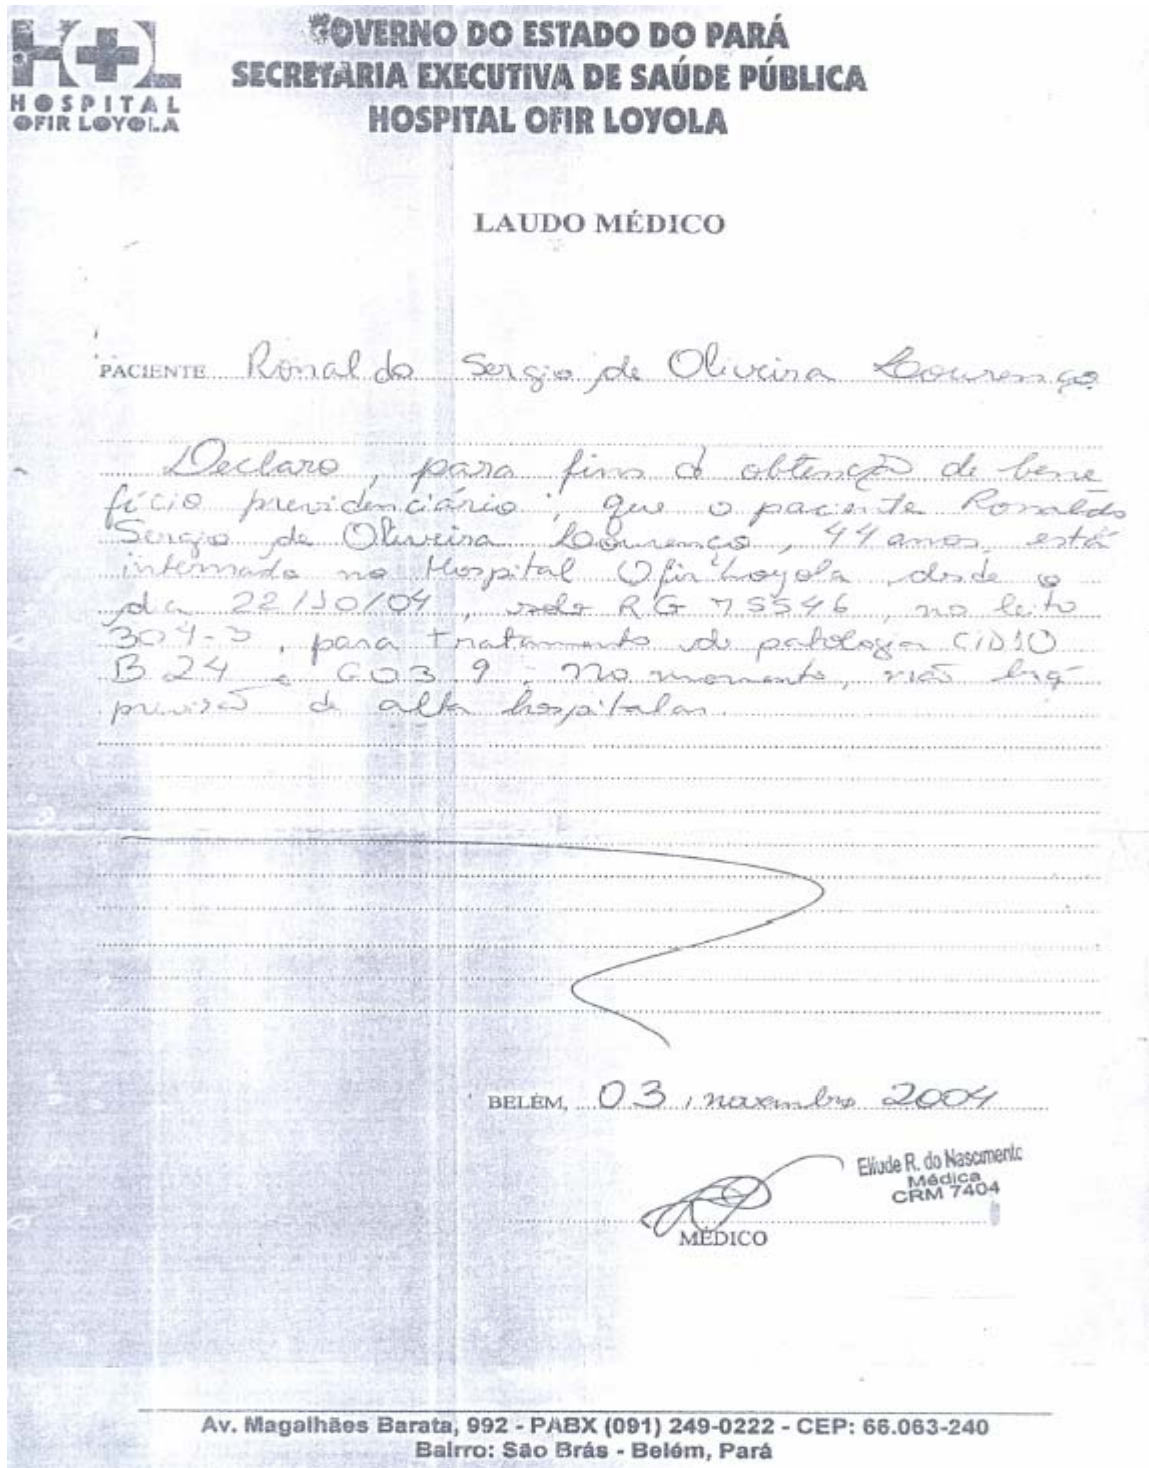 HOL
HOSPITAL
OFIR LOYOLA
GOVERNO DO ESTADO DO PARÁ
SECRETARIA EXECUTIVA DE SAÚDE PÚBLICA
HOSPITAL OFIR LOYOLA
LAUDO MÉDICO
PACIENTE Ronaldo Sergio de Oliveira Lourenço
Declaro, para fins d obtenção de bene
fício previdenciário, que o paciente Ronaldo
Sergio de Oliveira Lourenço, 44 anos, está
internado no Hospital Ofir Loyola desde o
dia 22/10/04, RG 75546, no leito
304-3, para tratamento de patologia CID10
B24 e G03.9. No momento, não há
previsão de alta hospitalar.
BELÉM, 03, novembro 2004
Eliude R. do Nascimento
Médica
CRM 7404
MÉDICO
Av. Magalhães Barata, 992 - PABX (091) 249-0222 - CEP: 66.063-240
Bairro: São Brás - Belém, Pará